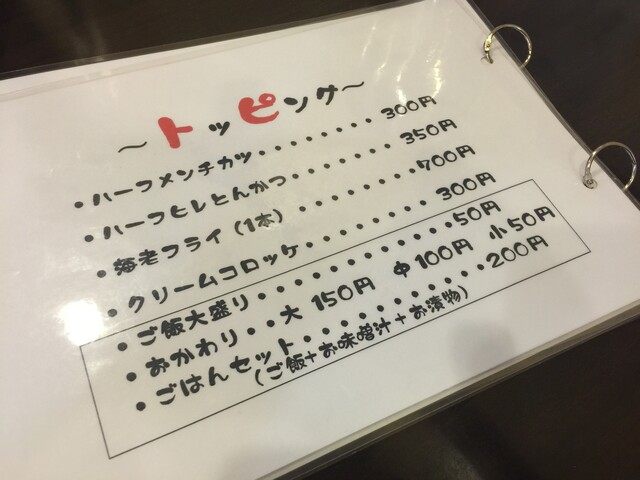 ～トッピング～
・ハーフメンチカツ・・・・・・・・300円
・ハーフヒレとんかつ・・・・・・・350円
・海老フライ（1本）・・・・・・・・700円
・クリームコロッケ・・・・・・・・300円
・ご飯大盛り・・・・・・・・・・・・50円
・おかわり・・大 150円 中100円 小50円
・ごはんセット・・・・・・・・・・・200円
（ご飯+お味噌汁+お漬物）